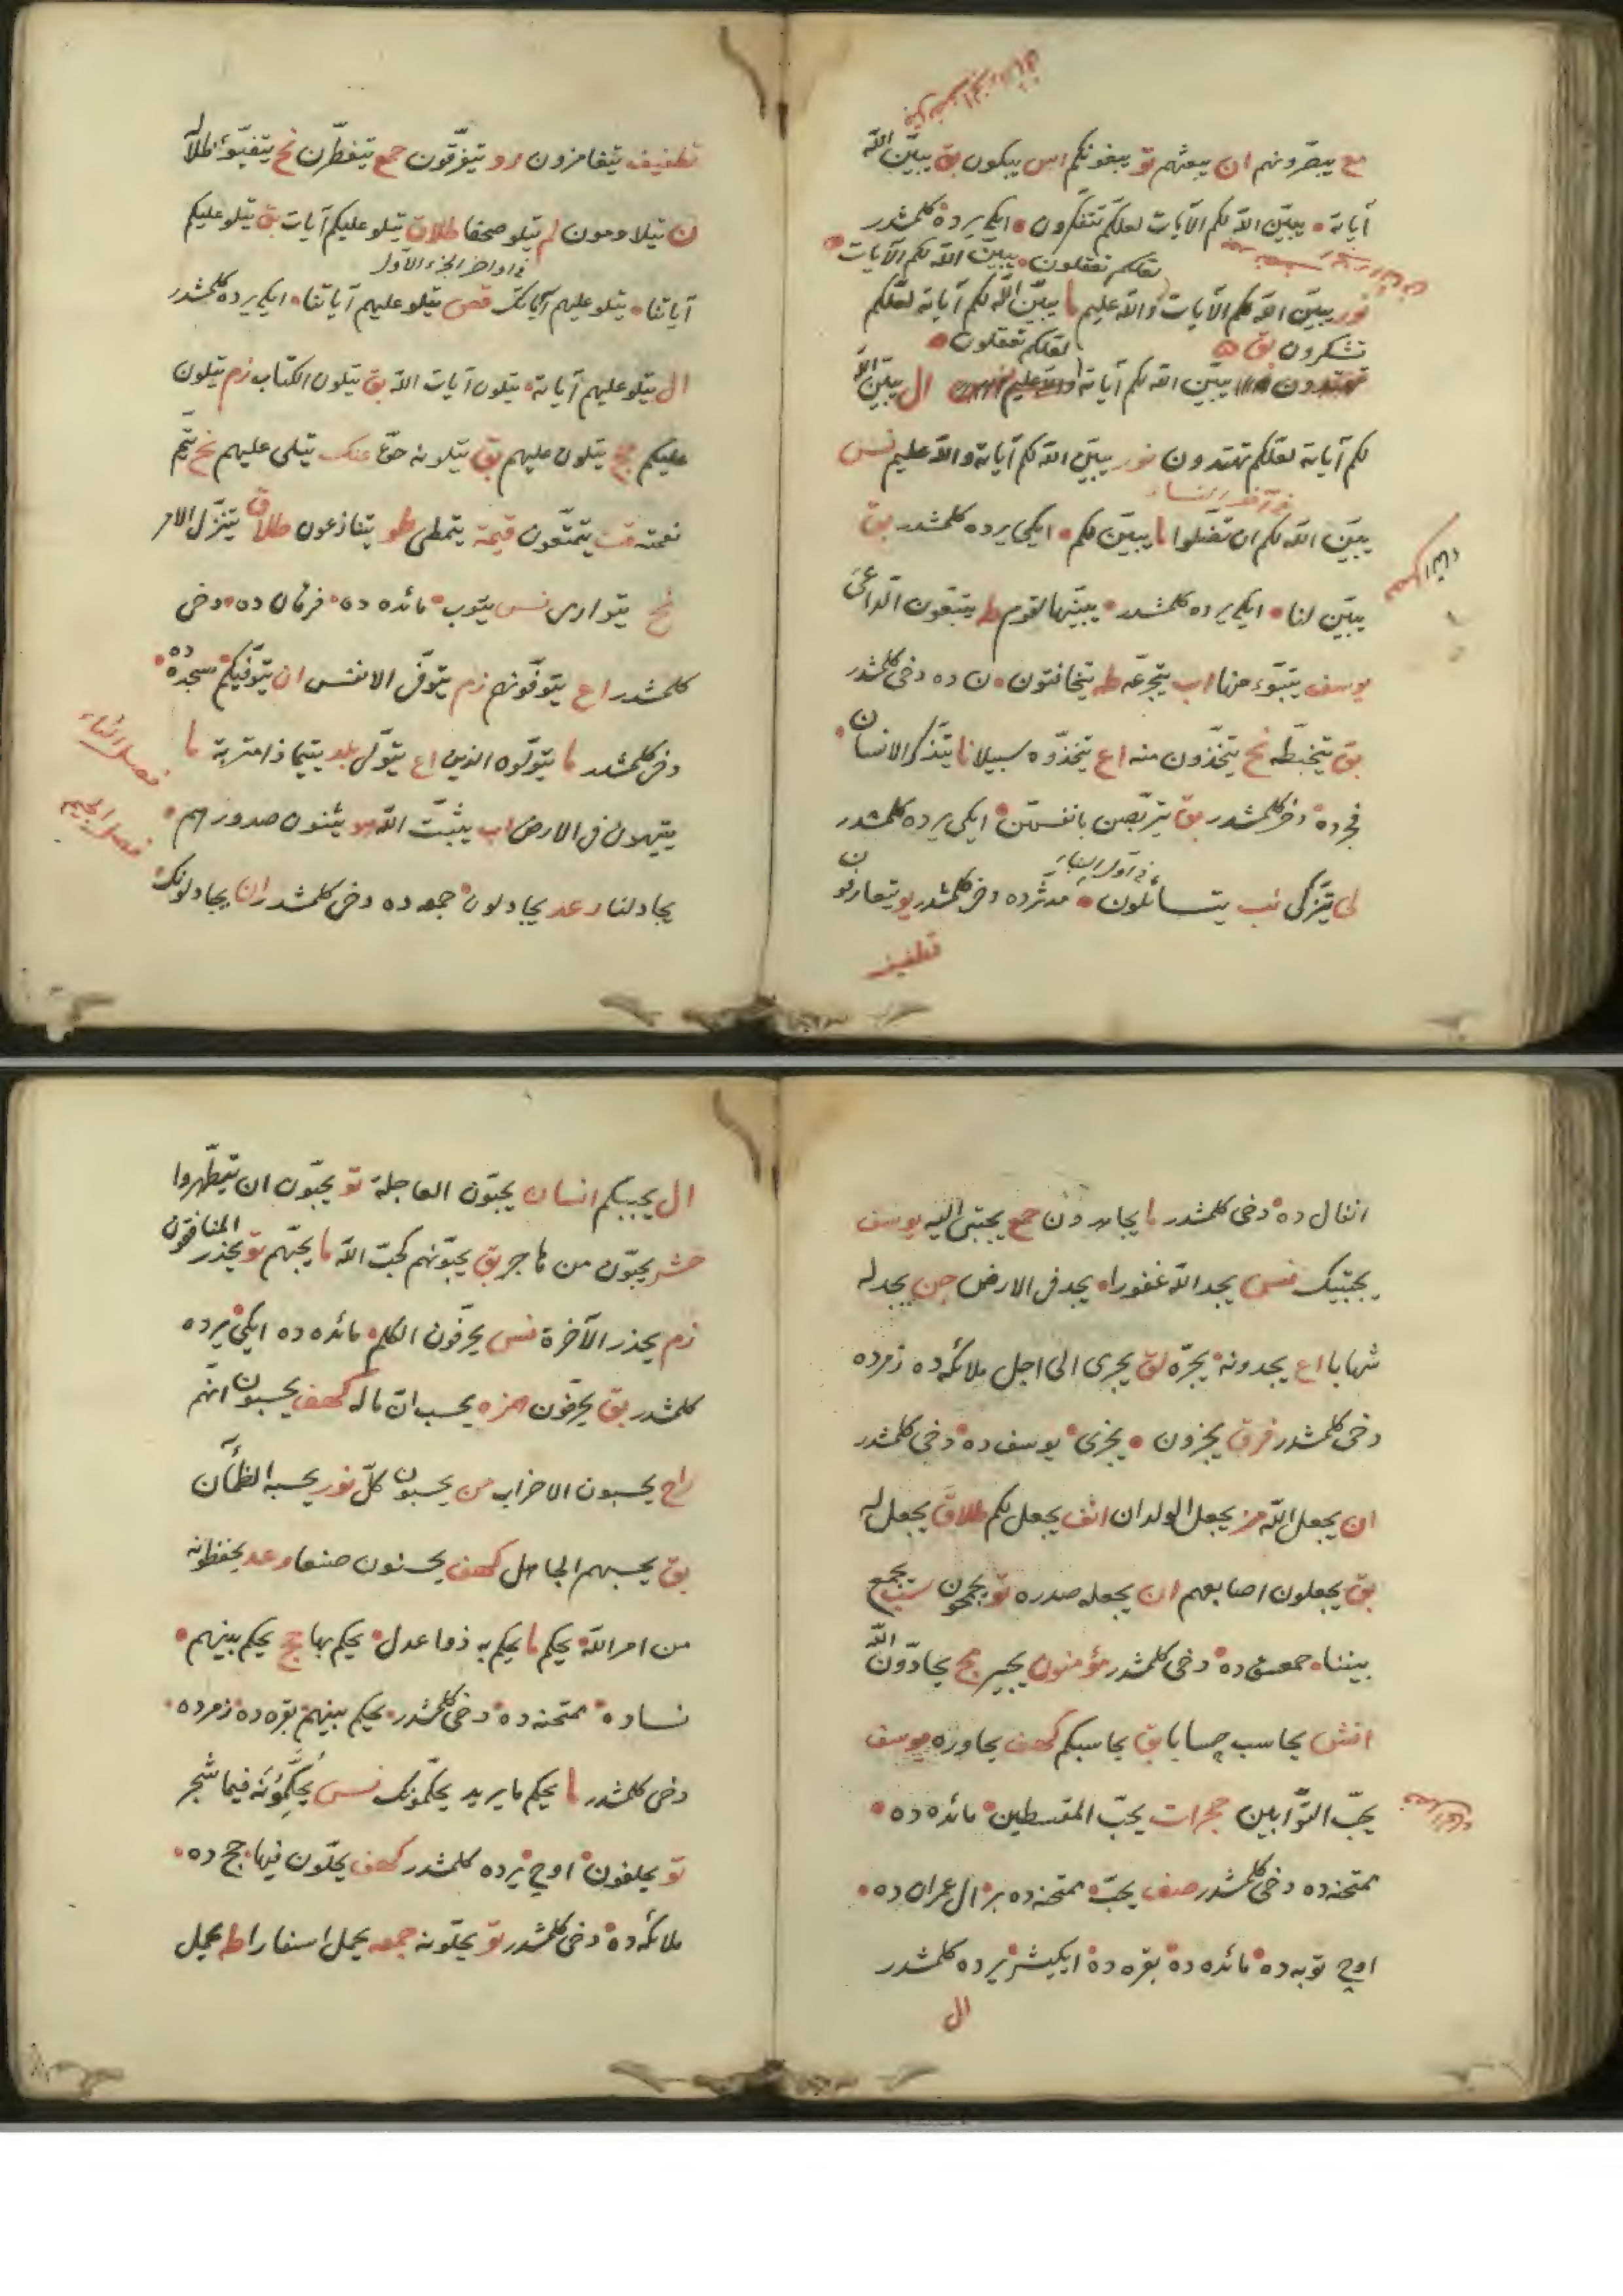 مع يبصّرونهم ان يبعثهم تو يبغونكم اس يبكون بق يبيّن الله
آياته • يبيّن الله لكم الآيات لعلكم تتفكرون • ايكى يرده كلمشدر
لعلكم تعقلون • يبيّن الله لكم الآيات
نور يبيّن الله لكم الآيات والله عليم ما يبيّن الله لكم آياته لعلكم
تشكرون بق لعلكم تعقلون
يبيّن الله لكم آياته ال يبيّن الله
لكم آياته لعلكم تهتدون نور يبيّن الله لكم آياته والله عليم نس
فى آخر النساء
يبيّن الله لكم ان تضلوا ما يبيّن لكم • ايكى يرده كلمشدر بق
يبيّن لنا • ايكى يرده كلمشدر • يبيّنها لقوم طه يتبعون الداعى
يوسف يتبوّء منها اب يتجرعه طه يتخافتون • ن ده دخى كلمشدر
بق يتخبطه نح يتخذون منه اع يتخذوه سبيلا نا يتذكر الانسان •
فجرده دخى كلمشدر بق يتربصن بانفسهن • ايكى يرده كلمشدر
لى يتزكى نب يتساءلون • مدثرده دخى كلمشدر يو يتعارفون
تطفيف
تطفيف يتغامزون رو يتفرّقون حمع يتفطّرن نح يتفيّؤ ظلاله
ن يتلاومون لم يتلو صحفا طلاق يتلو عليكم آيات بق يتلو عليكم
فى اواخر الجزء الاول
آياتنا • يتلو عليهم آياتك قص يتلو عليهم آياتنا • ايكى يرده كلمشدر
ال يتلو عليهم آياته • يتلون آيات الله بق يتلون الكتاب زم يتلون
عليكم حج يتلون عليهم بق يتلونه حق عنك يتلى عليهم نح يتم
نعمته قت يتمتعون قيمة يتمطى طو يتنازعون طلاق يتنزل الامر
نح يتوارى نس يتوب • مائده ده • فرقان ده • دخى
كلمشدر اع يتوفّونهم زم يتوفّى الانفس ان يتوفّيكم • سجده ده •
دخى كلمشدر ما يتولوه الذين اع يتولّى بلد يتيما ذا متربة ما
فصل الثاء
يتيهون فى الارض اب يثبّت الله هو يثنون صدورهم •
فصل الجيم
يجادلنا رعد يجادلون • حج ده دخى كلمشدر ان يجادلونك •
انفال ده • دخى كلمشدر ما يجاهدون حمع يجتبى اليه يوسف
يجتبيك نس يجد الله غفورا • يجد فى الارض جن يجد له
شهابا اع يجدونه • يجرّه لق يجرى الى اجل ملائكه ده زمرده
دخى كلمشدر فرق يجزون • يجزى • يوسف ده • دخى كلمشدر
ان يجعل الله مز يجعل الولدان انف يجعل لكم طلاق يجعل له
بق يجعلون اصابعهم ان يجعله صدره تو يجمحون سب يجمع
بيننا • حمعسق ده • دخى كلمشدر مؤمنون يجير مج يحادّون الله
انش يحاسب حسابا بق يحاسبكم كهف يحاوره يوسف
يحبّ التوّابين حجرات يحبّ المقسطين • مائده ده •
ممتحنه ده دخى كلمشدر صف يحبّ • ممتحنه ده بر • ال عمران ده •
اوچ توبه ده • مائده ده • بقره ده • ايكيشر يرده كلمشدر
ال
ال يحببكم انسان يحبّون العاجلة تو يحبّون ان يتطهّروا
حشر يحبّون من هاجر بق يحبّونهم كحبّ الله ما يحبّهم تو يحذر المنافقون
زم يحذر الآخرة نس يحرّفون الكلم • مائده ده ايكى يرده
كلمشدر بق يحرّفون همزه يحسب انّ ماله كهف يحسبون انّهم
اح يحسبون الاحزاب من يحسبون كلّ نور يحسبه الظمآن
بق يحسبهم الجاهل كهف يحسنون صنعا رعد يحفظونه
من امر الله • يحكم ما يحكم به ذوا عدل • يحكم بها حج يحكم بينهم •
نساده • ممتحنه ده • دخى كلمشدر • يحكم بينهم • بقره ده • زمرده •
دخى كلمشدر ما يحكم ما يريد يحكّمونك نس يُحَكِّمُونَكَ فيما شجر
تو يحلفون • اوچ يرده كلمشدر كهف يحلّون فيها • حج ده •
ملائكه ده • دخى كلمشدر تو يحلّونه جمعه يحمل اسفارا طه يحمل